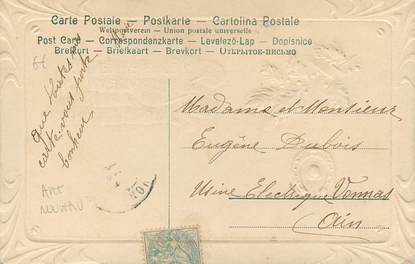 Carte Postale – Postkarte – Cartolina Postale
Weltpostverein – Union postale universelle
Post Card – Correspondenzkarte – Levelező-Lap – Dopisnice
Brefkort – Briefkaart – Brevkort – ОТКРЫТОЕ-ПИСЬМО
6f
Que toutes
carte vous porte
bonheur
Madame et Monsieur
Eugène Dubois
Usine Electrique Vonnas
Ain
ART
NOUVEAU